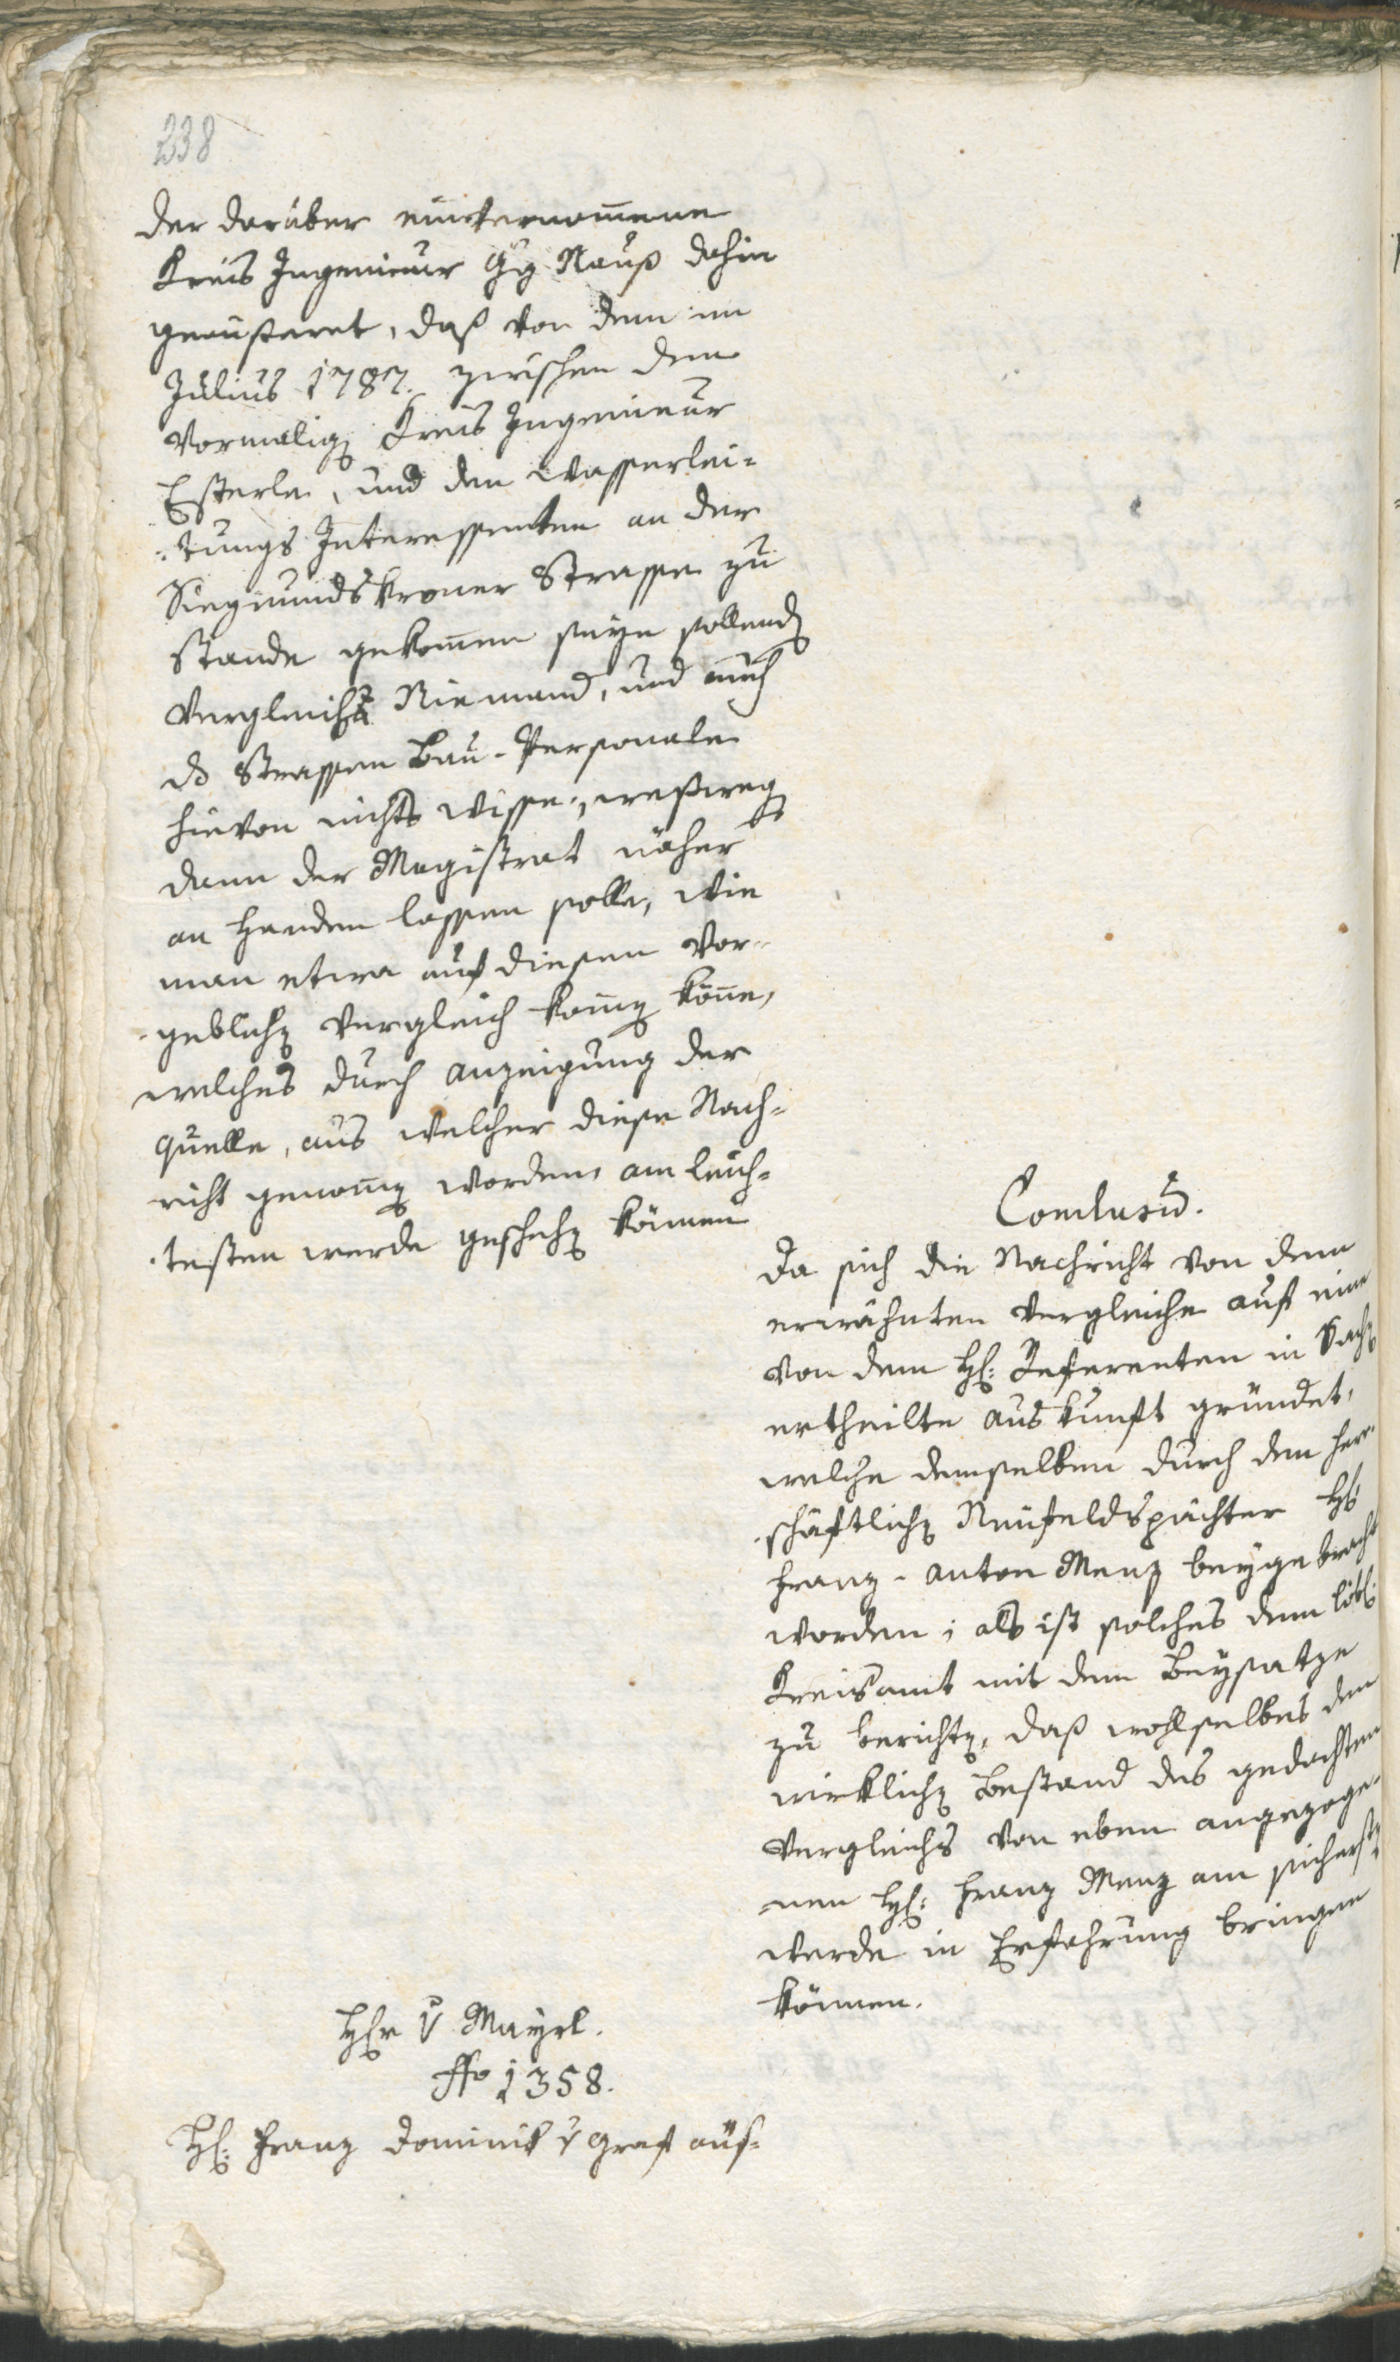 238
der darüber einvernom̄ene
Kreis Ingenieur Gg Nauß dahin
geaüsseret, daß von dem im
Julius 1787. zwischen dem
vormalig Kreis Ingenieur
Esterle, und den Wasserlei-
tungs Interessenten an der
Siegmundskroner Strassen zu
Stande gekom̄en seyn sollend
Vergleiche Niemand, und auch
ds Strassen Bau-Personale
hievon nichts wisse, wesweg
dann der Magistrat näher
an Handen lassen solle, wie
man etwa auf diesen vor-
geblich Vergleich kom̄ kön̄e,
welches durch Anzeigung der
Quelle, aus welcher diese Nach-
richt genom̄ worden, am leich-
testen werde gescheh können
Conclusū.
Da sich die Nachricht von dem
erwähnten Vergleiche auf eine
von dem H: Referenten in Sach
ertheilte Auskunft gründet,
welche demselben durch den herr-
schäftlich Neufeldspächter H
Franz-Anton Menz beygebracht
worden; als ist solches dem löbl:
Kreisamt mit dem Beysatze
zu bericht, daß wohlselbes den
wirklich Bestand des gedachten
Vergleichs von eben angezoge-
nen H: Franz Menz am sicherst
werde in Erfahrung bringen
können.
Hr v Mayrl.
1358.
H: Franz Dominik v Graf auf-